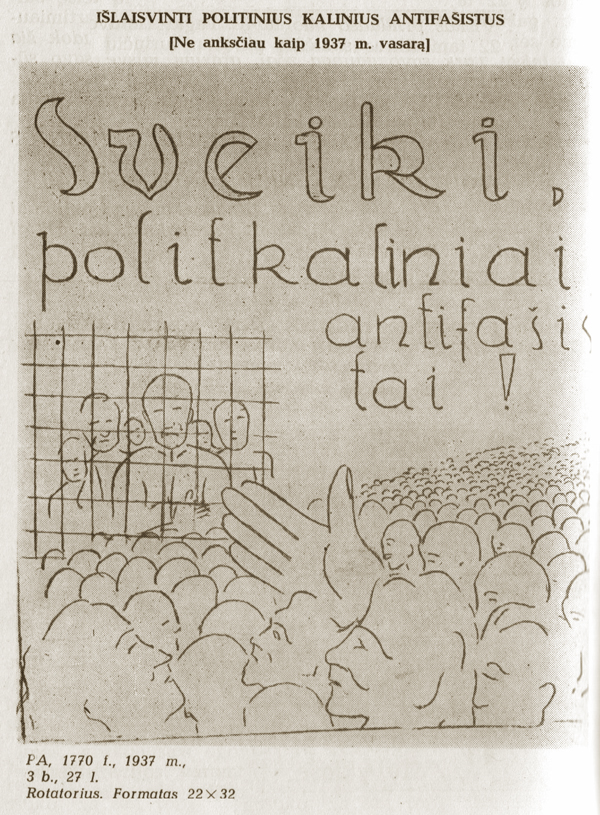 IŠLAISVINTI POLITINIUS KALINIUS ANTIFAŠISTUS
[Ne anksčiau kaip 1937 m. vasarą]
Sveiki,
politkaliniai
antifašis
tai !
PA, 1770 f., 1937 m.,
3 b., 27 l.
Rotatorius. Formatas 22×32